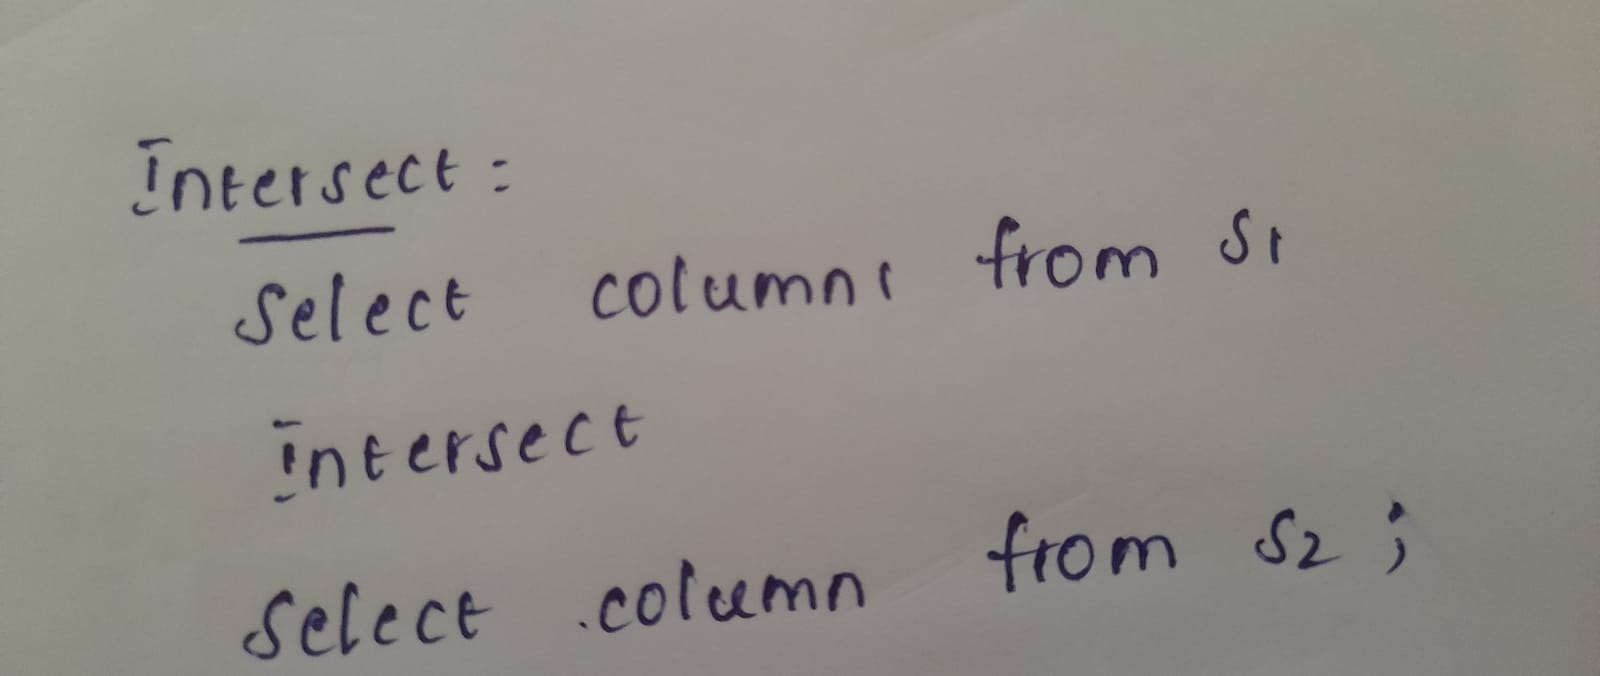 Intersect:
Select column1 from S1
Intersect
Select .column from S2 ;